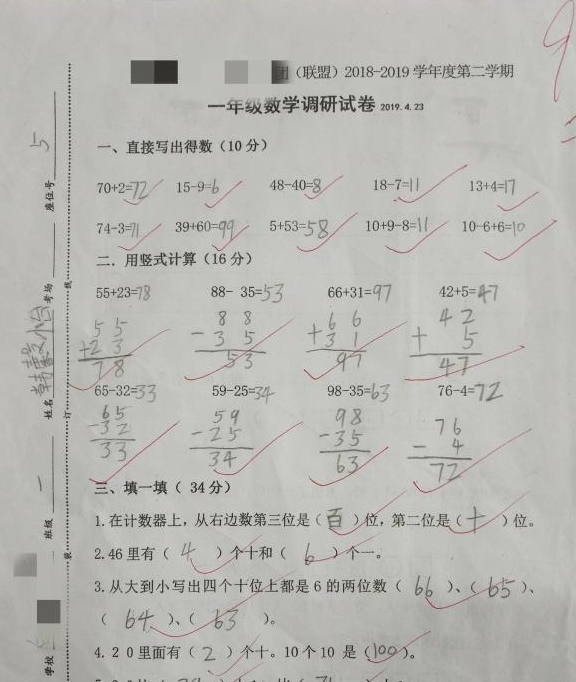 团（联盟）2018-2019 学年度第二学期
一年级数学调研试卷 2019.4.23
一、直接写出得数（10 分）
70+2=72 15-9=6 48-40=8 18-7=11 13+4=17
74-3=71 39+60=99 5+53=58 10+9-8=11 10-6+6=10
二．用竖式计算（16 分）
55+23=78 88- 35=53 66+31=97 42+5=47
5 5 8 8 6 6 4 2
+2 3 -3 5 +3 1 + 5
7 8 53 97 47
65-32=33 59-25=34 98-35=63 76-4=72
65 59 98 76
-32 -25 -35 - 4
33 34 63 72
三、填一填（ 34 分）
1.在计数器上，从右边数第三位是（百）位，第二位是（十）位。
2.46 里有（ 4 ）个十和（ 6 ）个一。
3.从大到小写出四个十位上都是 6 的两位数（ 66 ）、（ 65 ）、
（ 64 ）、（ 63 ）。
4.２０里面有（ 2 ）个十。10 个 10 是（100）。
学校
班级 一
姓名
考场
座位号 5
装
订
线